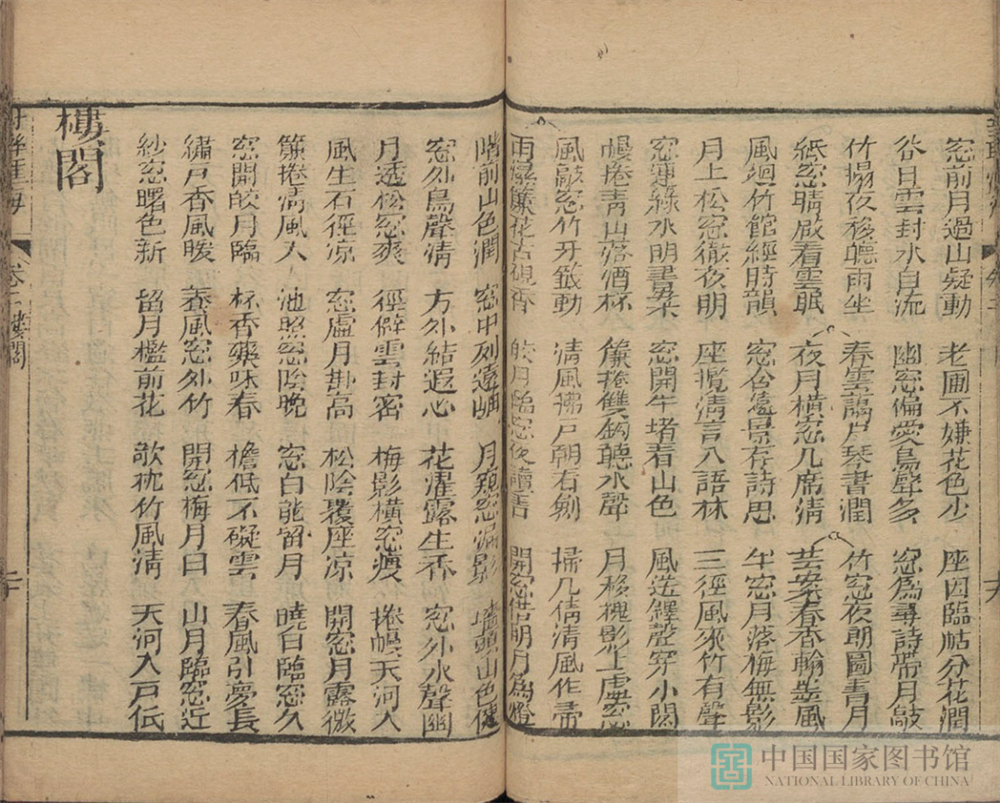 窓前月過山疑動 老圃不嫌花色少 座因臨帖分花潤
谷日雲封水自流 幽窓偏愛鳥聲多 窓爲尋詩帶月敲
竹榻夜移聽雨坐 春雲滿戶琴書潤 竹窓夜朗圖書月
紙窓晴啟看雲眠 夜月橫窓几席清 芸案春香翰墨風
風廻竹館經時韻 窓含遠景存詩思 午窓月落梅無影
月上松窓徹夜明 座攬清言入語林 三徑風來竹有聲
窓連綠水明書案 窓開午堵看山色 風送鐸聲穿小閣
幔捲青山落酒杯 簾捲雙鈎聽水聲 月移槐影上虛窓
風敲窓竹牙籤動 清風拂戶朝右劍 掃几倩清風作帚
雨溼簾花古硯香 皎月臨窓夜讀書 開窓借明月爲燈
階前山色潤 窓中列遠岫 月窺窓漏影 墻頭山色健
窓外鳥聲清 方外結遐心 花濯露生香 窓外水聲幽
月透松窓爽 徑僻雲封密 梅影橫窓瘦 捲幔天河入
風生石徑凉 窓虛月掛高 松陰覆座凉 開窓月露微
簾捲清風入 池照窓陰晚 窓白能留月 曉白臨窓久
窓開皎月臨 杯香藥味春 檐低不礙雲 春風引夢長
繡戶香風暖 養風窓外竹 開窓梅月白 山月臨窓近
紗窓曙色新 留月檻前花 欹枕竹風清 天河入戶低
樓閣
卷二 樓閣 二十
中国国家图书馆
NATIONAL LIBRARY OF CHINA